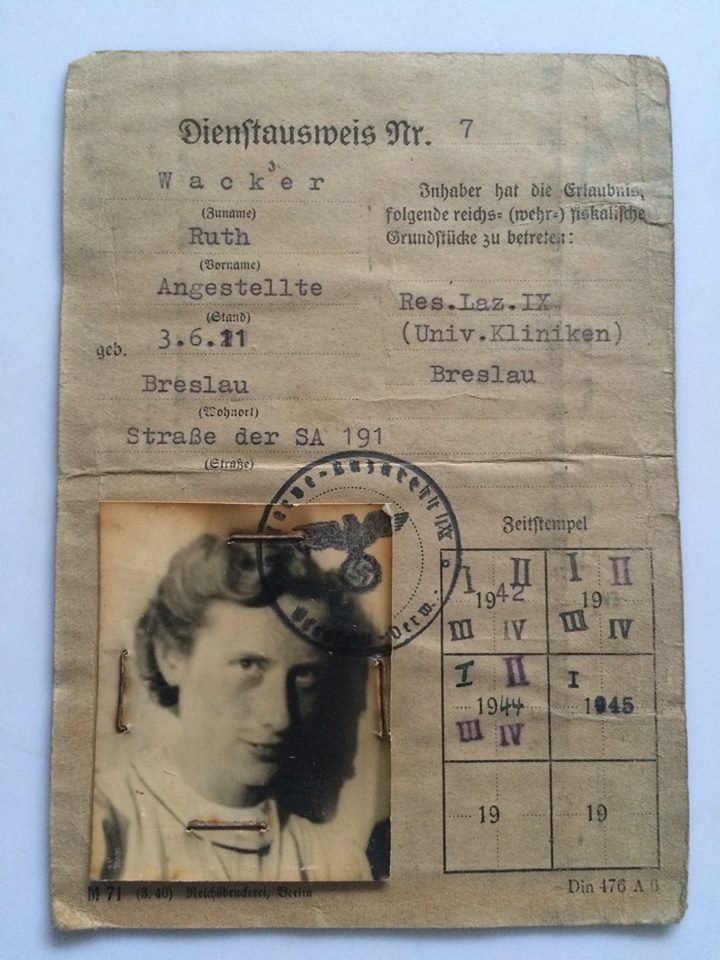 Dienstausweis Nr. 7
Wacker
(Zuname)
Ruth
(Vorname)
Angestellte
(Stand)
geb. 3.6.21
Breslau
(Wohnort)
Straße der SA 191
(Straße)
Inhaber hat die Erlaubnis,
folgende reichs= (wehr=) fiskalische
Grundstücke zu betreten:
Res.Laz.IX
(Univ.Kliniken)
Breslau
Zeitstempel
I II I II
1942 19
III IV III IV
I II I
1944 1945
III IV
19 19
M 71 (3. 40) Reichsdruckerei, Berlin
Din 476 A 6